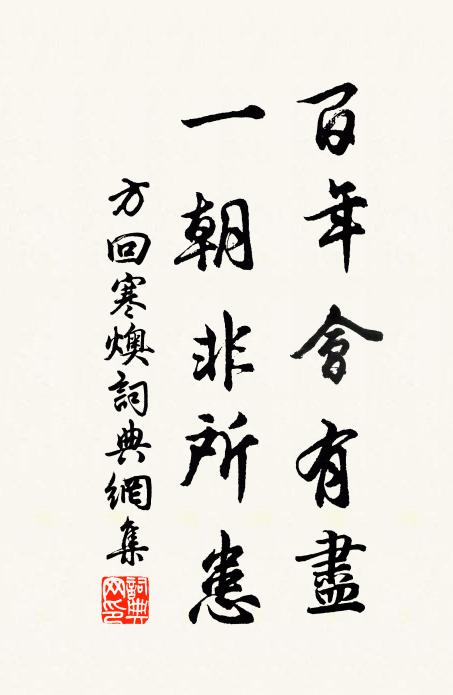 百年會有盡
一朝非所患
方回寒燠詞典網集
詞典网印